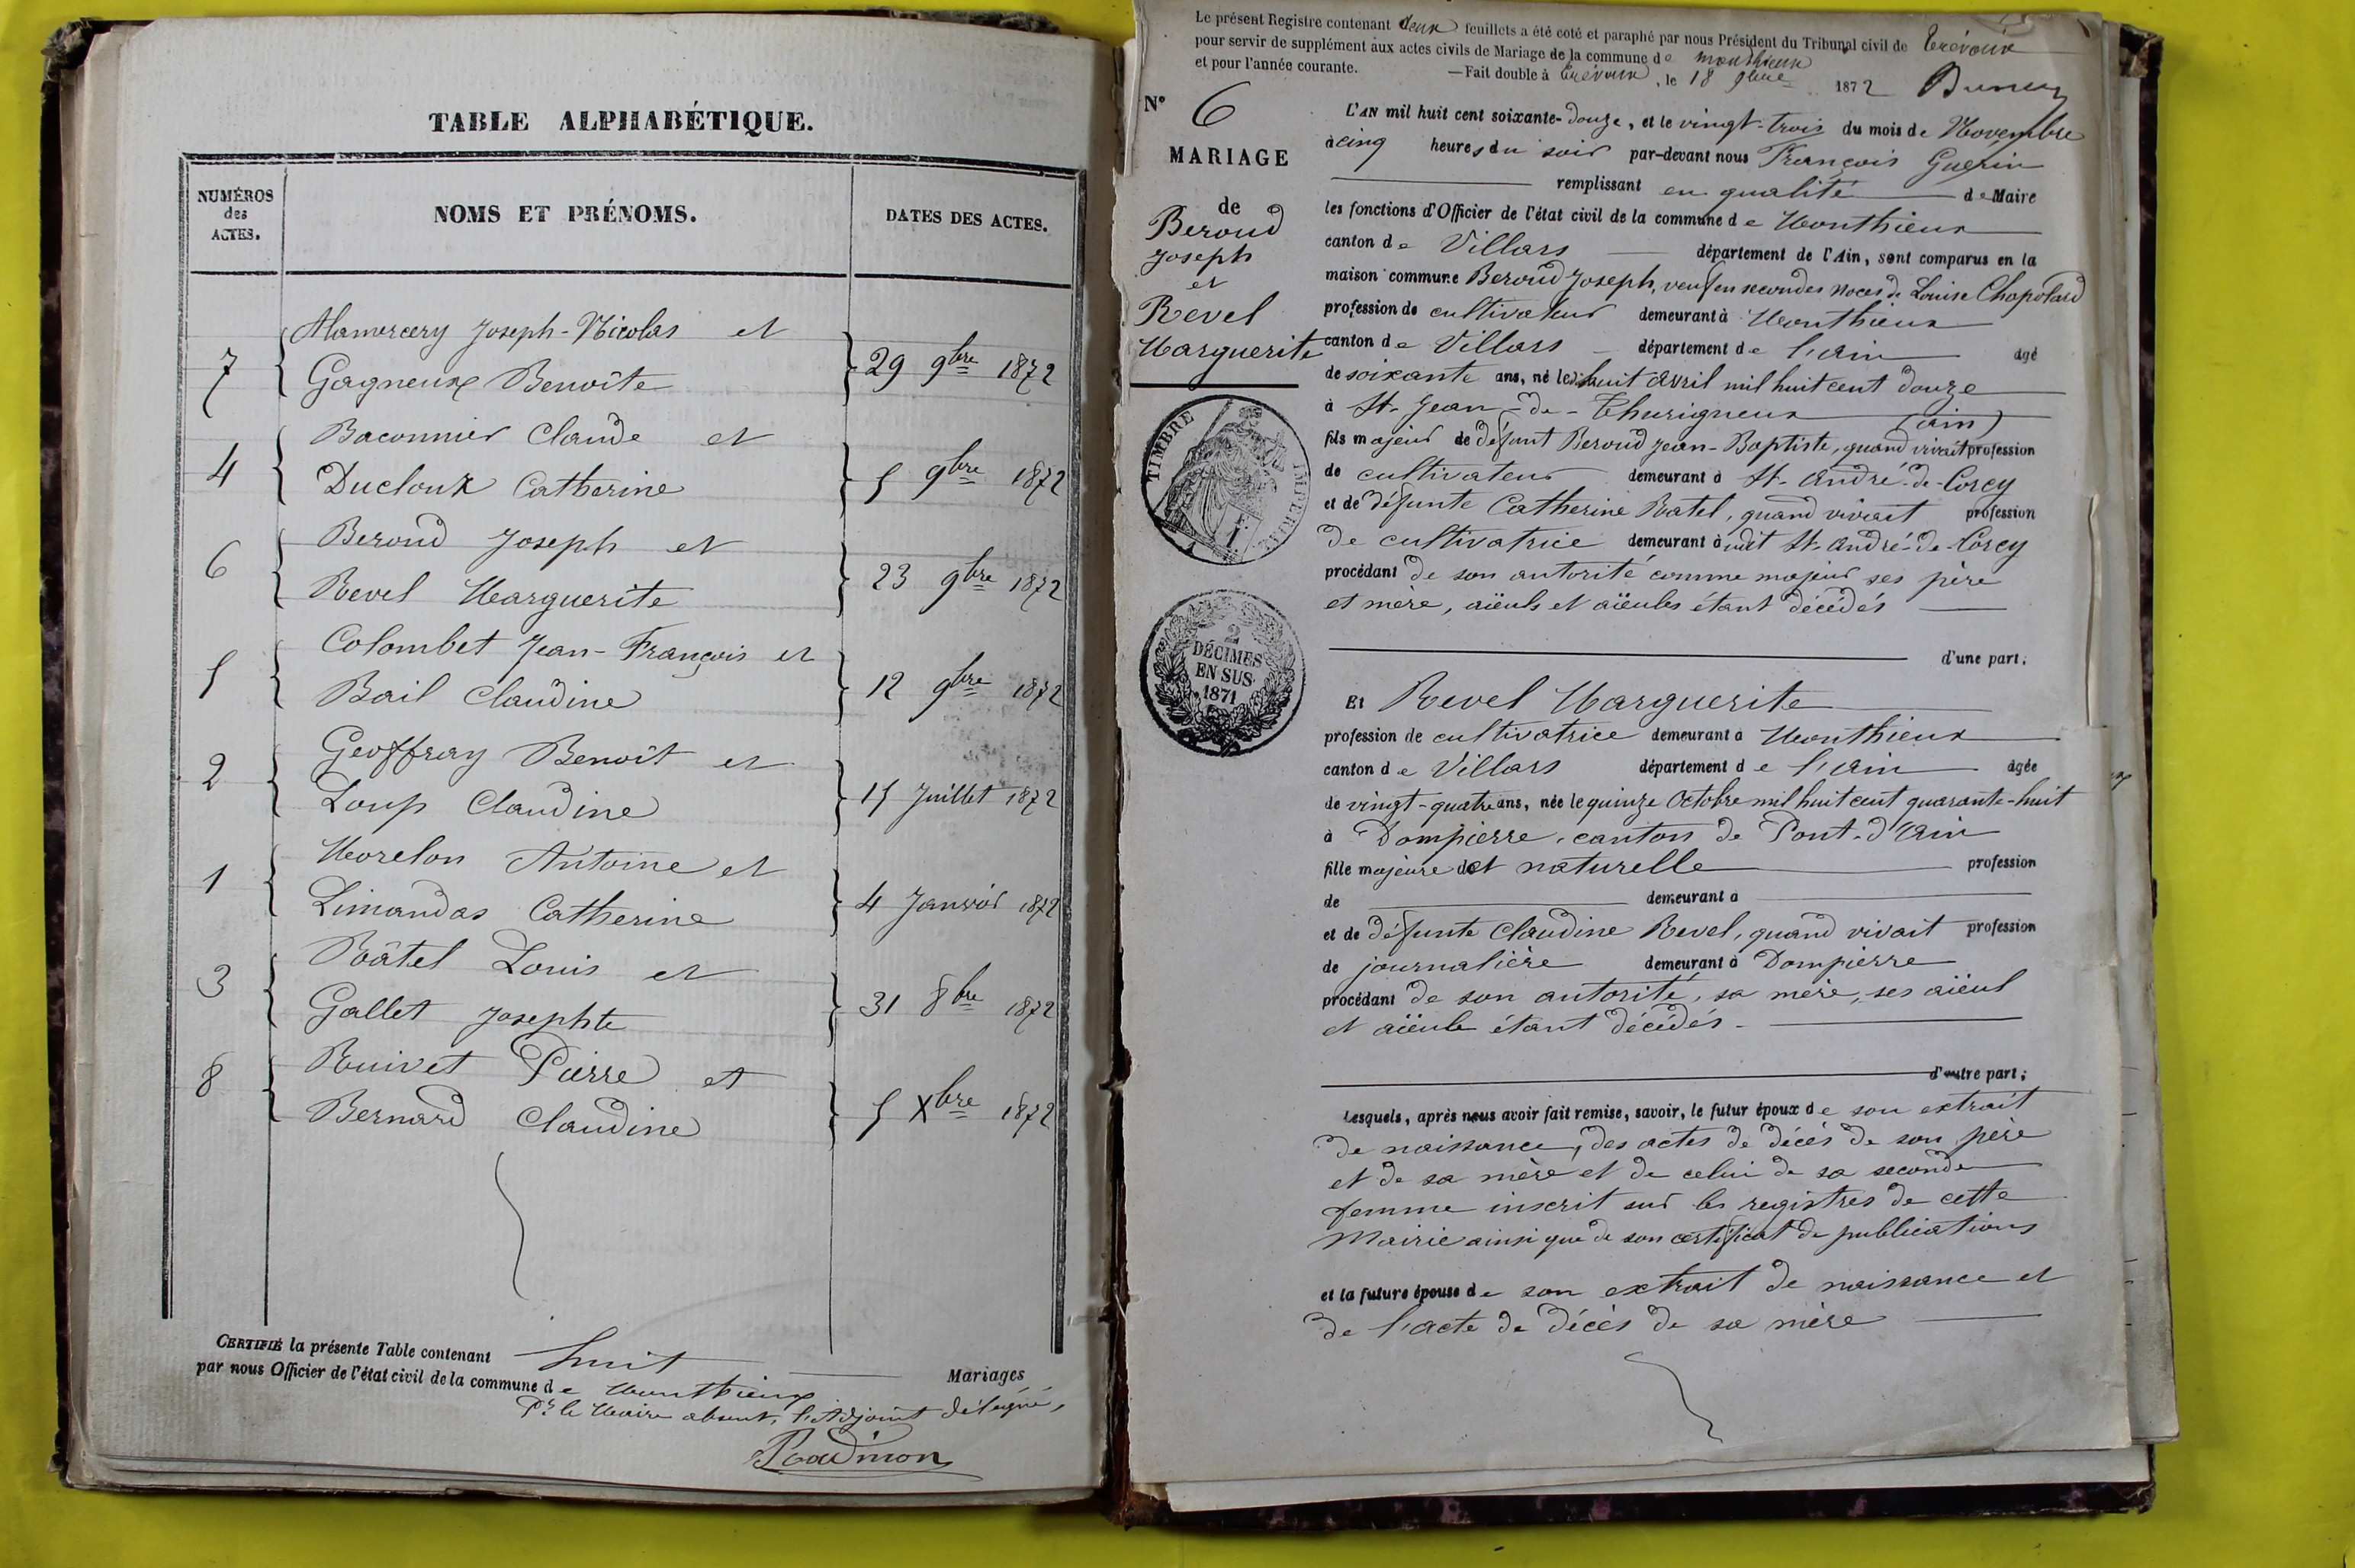 TABLE ALPHABÉTIQUE.
NUMÉROS
des
ACTES.
NOMS ET PRÉNOMS.
DATES DES ACTES.
Alamercery Joseph-Nicolas et
7 Gagneux Benoîte 29 9bre 1872
Baconnier Claude et
4 Ducloux Catherine 5 9bre 1872
Beroud Joseph et
6 Revel Marguerite 23 9bre 1872
Colombet Jean-François et
5 Bail Claudine 12 9bre 1872
Geoffray Benoît et
2 Loup Claudine 15 Juillet 1872
Morelon Antoine et
1 Limandas Catherine 4 Janvier 1872
Râtel Louis et
3 Gallet Josephte 31 8bre 1872
Ruivet Pierre et
8 Bernard Claudine 5 Xbre 1872
CERTIFIÉ la présente Table contenant huit Mariages
par nous Officier de l'état civil de la commune de Monthieux
Pr le Maire absent, l'Adjoint délégué,
Le présent Registre contenant deux feuillets a été coté et paraphé par nous Président du Tribunal civil de Trévoux
pour servir de supplément aux actes civils de Mariage de la commune de Monthieux
et pour l'année courante. —Fait double à Trévoux, le 18 9bre 1872
N° 6
MARIAGE
de
Beroud
Joseph
et
Revel
Marguerite
TIMBRE IMPÉRIAL
2
DÉCIMES
EN SUS
1871
L'AN mil huit cent soixante-douze, et le vingt-trois du mois de Novembre
à cinq heures du soir par-devant nous François Guérin
remplissant en qualité de Maire
les fonctions d'Officier de l'état civil de la commune de Monthieux
canton de Villars département de l'Ain, sont comparus en la
maison commune Beroud Joseph, veuf en secondes noces de Louise Chapolard
profession de cultivateur demeurant à Monthieux
canton de Villars département de l'Ain âgé
de soixante ans, né le dix huit avril mil huit cent douze
à St-Jean-de-Thurigneux (Ain)
fils majeur de défunt Beroud Jean-Baptiste, quand vivait profession
de cultivateur demeurant à St-André-de-Corcy
et de défunte Catherine Ratel, quand vivait profession
de cultivatrice demeurant à udit St-André-de-Corcy
procédant de son autorité comme majeur ses père
et mère, aïeuls et aïeules étant décédés
d'une part;
Et Revel Marguerite
profession de cultivatrice demeurant à Monthieux
canton de Villars département de l'Ain âgée
de vingt-quatre ans, née le quinze Octobre mil huit cent quarante-huit
à Dompierre, canton de Pont-d'Ain
fille majeure et naturelle profession
de demeurant à
et de défunte Claudine Revel, quand vivait profession
de journalière demeurant à Dompierre
procédant de son autorité, sa mère, ses aïeul
et aïeule étant décédés
d'autre part;
Lesquels, après nous avoir fait remise, savoir, le futur époux de son extrait
de naissance, des actes de décès de son père
et de sa mère et de celui de sa seconde
femme inscrit sur les registres de cette
Mairie ainsi que de son certificat de publications
et la future épouse de son extrait de naissance et
de l'acte de décès de sa mère